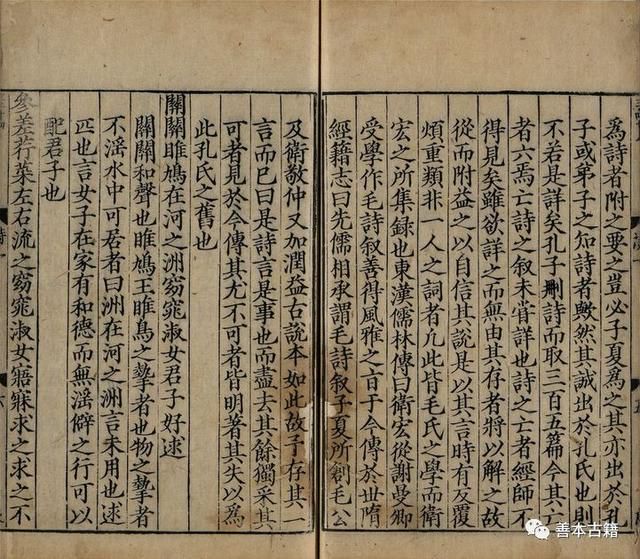 為詩者附之要之豈必子夏為之其亦出於孔
子或弟子之知詩者歟然其誠出於孔氏也則
不若是詳矣孔子刪詩而取三百五篇今其亡
者六焉亡詩之叙未嘗詳也詩之亡者經師不
得見矣雖欲詳之而無由其存者將以解之故
從而附益之以自信其說是以其言時有反覆
煩重類非一人之詞者凡此皆毛氏之學而衛
宏之所集録也東漢儒林傳曰衛宏從謝曼卿
受學作毛詩叙善得風雅之旨于今傳於世隋
經籍志曰先儒相承謂毛詩叙子夏所創毛公
及衛敬仲又加潤益古說本如此故予存其一
言而已曰是詩言是事也而盡去其餘獨采其
可者見於今傳其尤不可者皆明著其失以為
此孔氏之舊也
關關雎鳩在河之洲窈窕淑女君子好逑
關關和聲也雎鳩王雎鳥之摯者也物之摯者
不淫水中可居者曰洲在河之洲言未用也逑
匹也言女子在家有和德而無淫僻之行可以
配君子也
參差荇菜左右流之窈窕淑女寤寐求之求之不
善本古籍